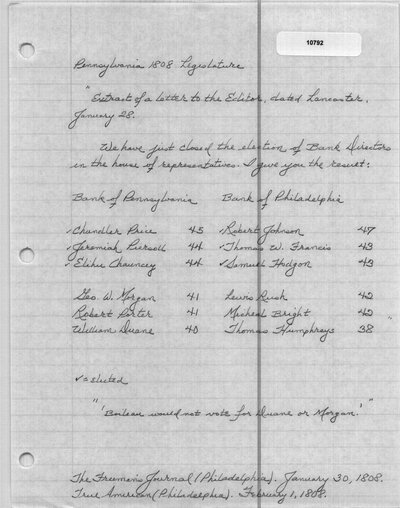 10792
Pennsylvania 1808 Legislature
"Extract of a letter to the Editor, dated Lancaster,
January 28.
We have just closed the election of Bank Directors
in the house of representatives. I give you the result:
Bank of Pennsylvania Bank of Philadelphia
✓Chandler Price 45 ✓Robert Johnson 47
✓Jeremiah Piersoll 44 ✓Thomas W. Francis 43
✓Elihu Chauncey 44 ✓Samuel Hodgon 43
Geo. W. Morgan 41 Lewis Rush 42
Robert Porter 41 Micheal Bright 42
William Duane 40 Thomas Humphreys 38 "
✓=elected
"'Boileau would not vote for Duane or Morgan.'"
The Freeman's Journal (Philadelphia). January 30, 1808.
True American (Philadelphia). February 1, 1808.